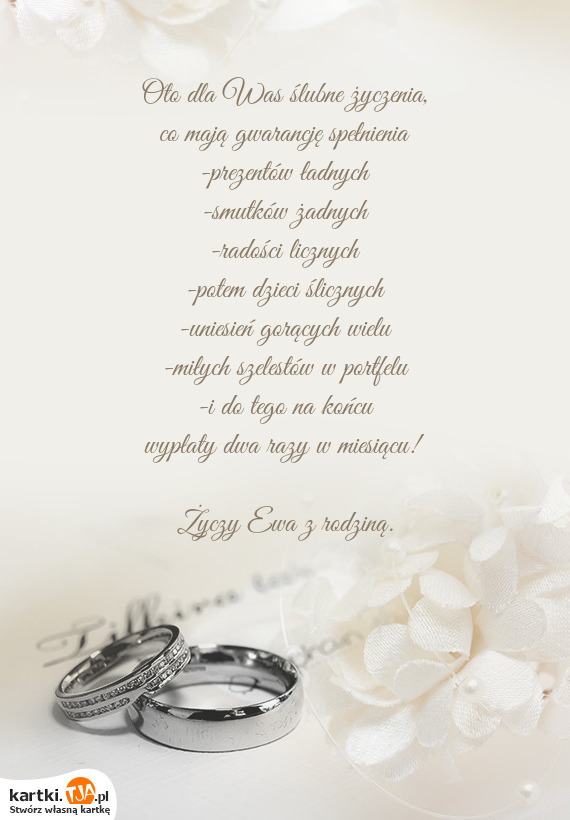 Oto dla Was ślubne życzenia,
co mają gwarancję spełnienia
-prezentów ładnych
-smutków żadnych
-radości licznych
-potem dzieci ślicznych
-uniesień gorących wielu
-miłych szelestów w portfelu
-i do tego na końcu
wypłaty dwa razy w miesiącu!
Życzy Ewa z rodziną.
kartki.TJA.pl
Stwórz własną kartkę